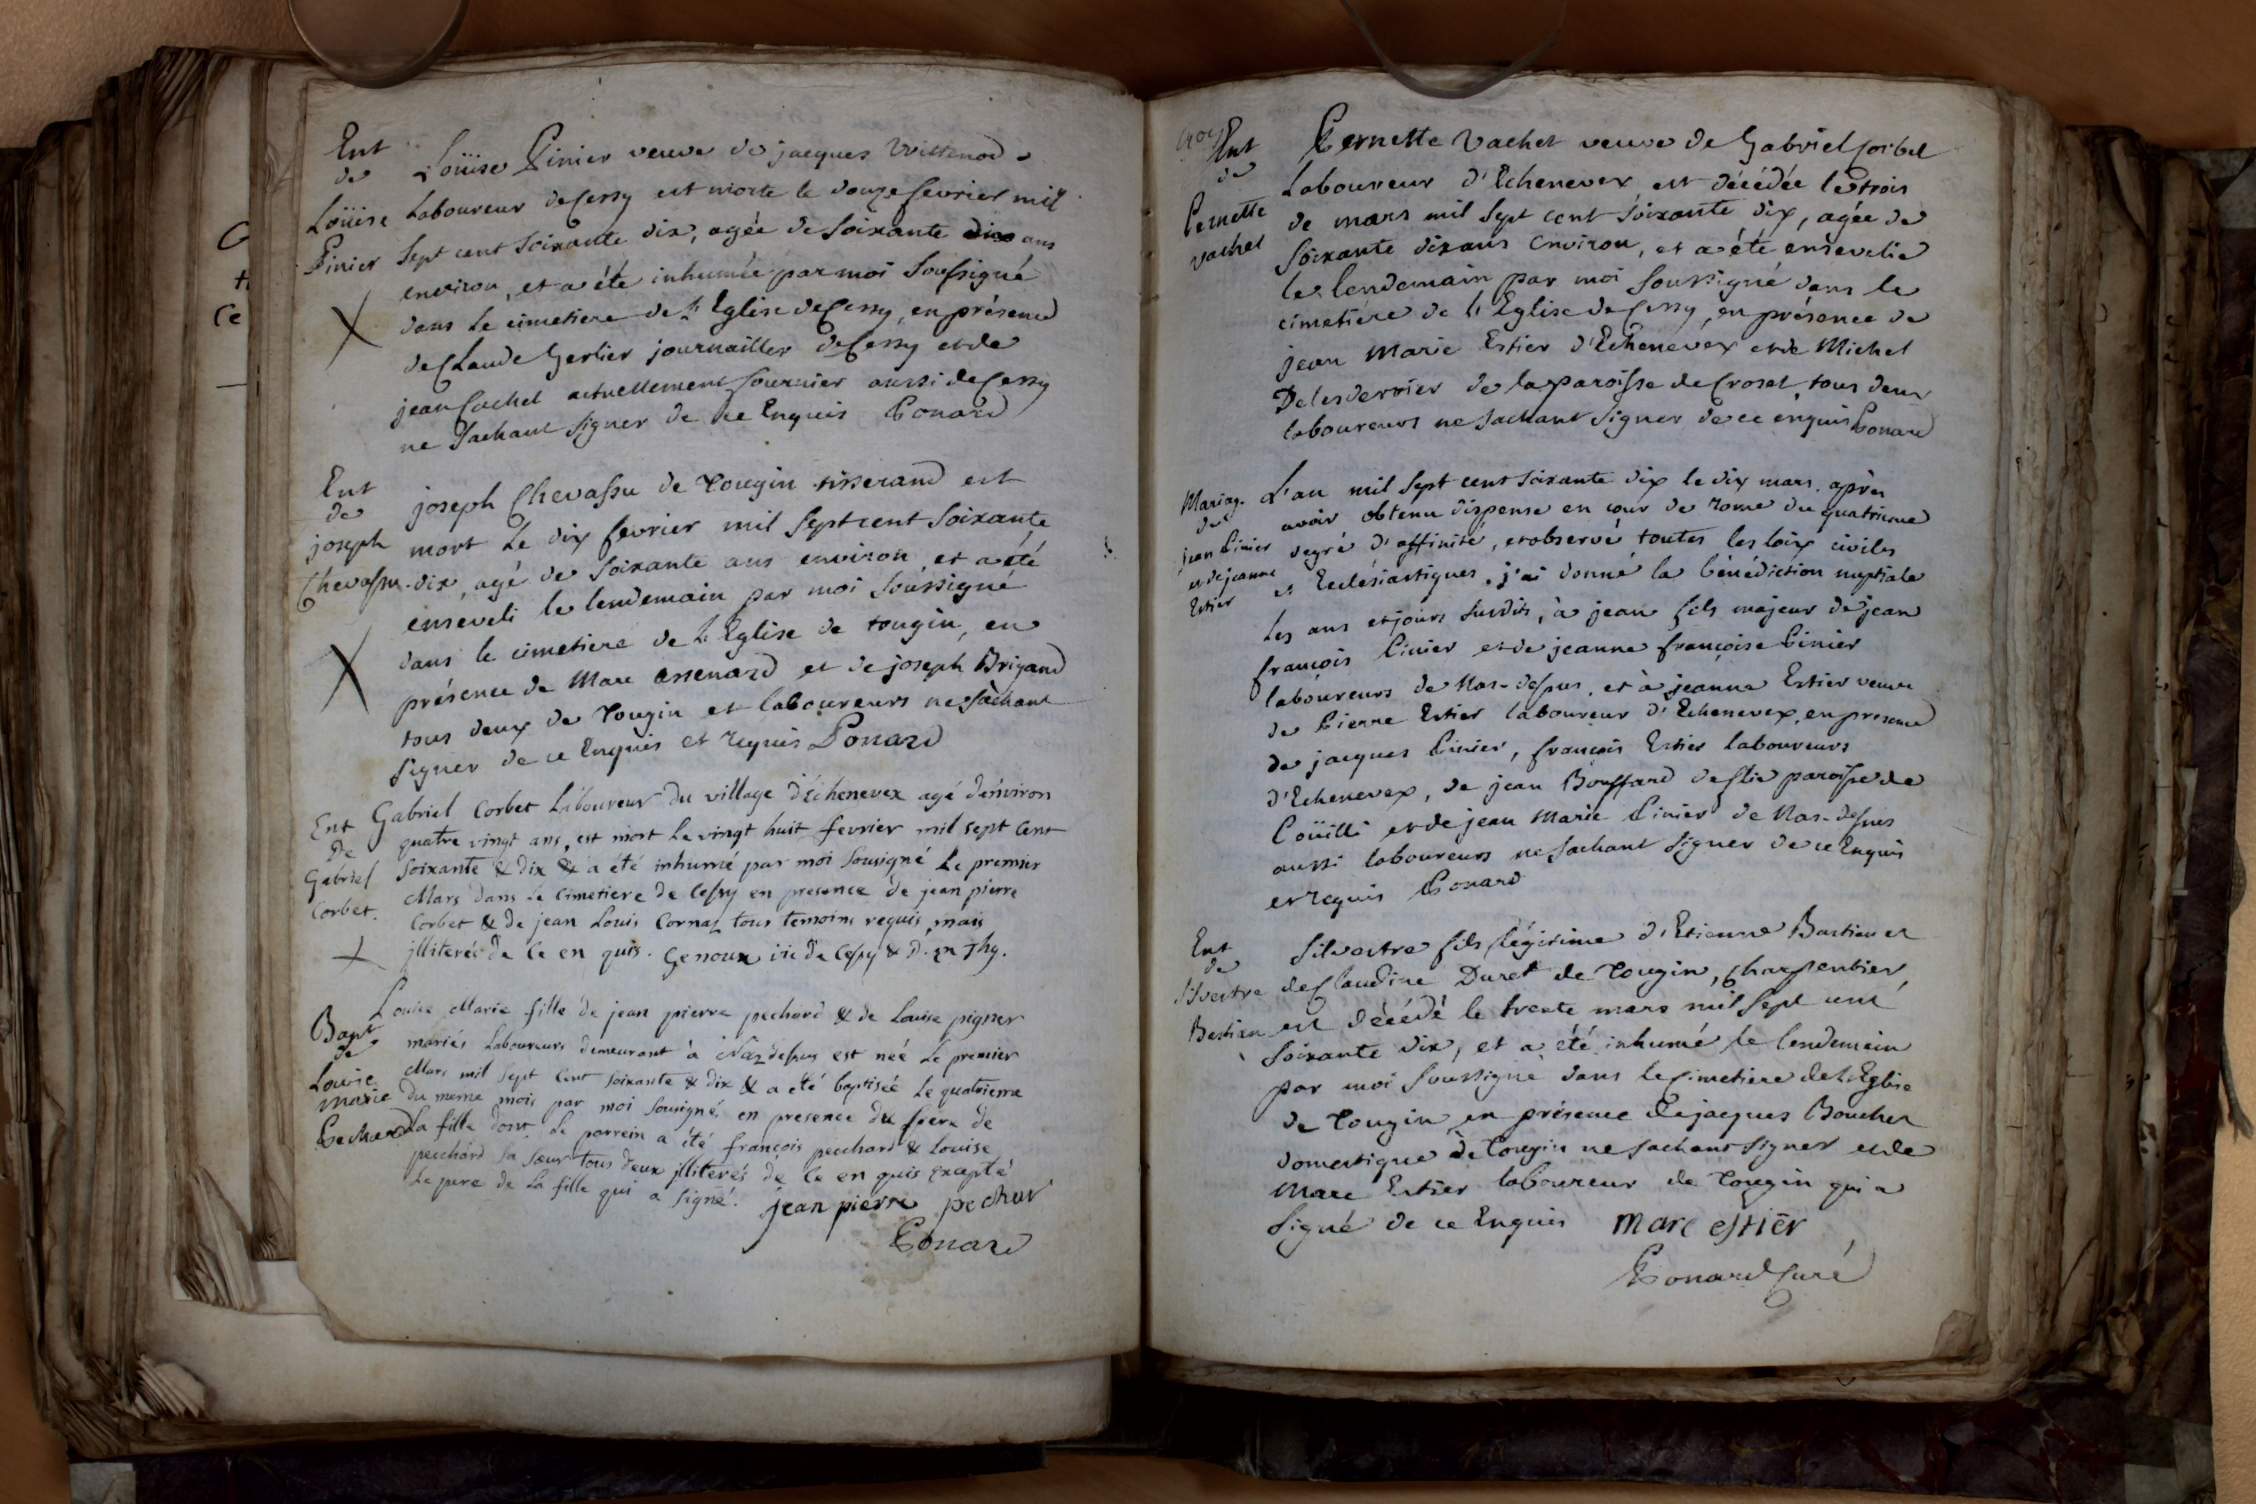 Ent
de
Loüise
Pinier
Loüise Pinier veuve de jacques Vuittenod
Laboureur de Cessy est morte le douze fevrier mil
sept cent soixante dix, agée de soixante dix ans
environ, et a été inhumée par moi soussigné
dans le cimetiere de l'Eglise de Cessy, en présence
de Claude Gerlier journailler de Cessy et de
jean Cachet actuellement fournier aussi de Cessy
ne sachant signer de ce Enquis Ponard
Ent
de
joseph
Chevassu
joseph Chevassu de Tougin tisserand est
mort le dix fevrier mil sept cent soixante
dix, agé de soixante ans environ, et a été
enseveli le lendemain par moi soussigné
dans le cimetiere de l'Eglise de tougin, en
présence de Marc et de joseph Brigand
tous deux de Tougin et laboureurs ne sachant
signer de ce Enquis et requis Ponard
Ent
De
Gabriel
Corbet.
Gabriel Corbet Laboureur du village d'Echenevex agé d'environ
quatre vingt ans, est mort le vingt huit fevrier mil sept cent
soixante & dix & a été inhumé par moi sousigné le premier
Mars dans le cimetiere de Cessy en presence de jean pierre
Corbet & de jean Louis Cornaz tous temoins requis, mais
illiterés de ce en quis. Genoux
Bapt
de
Louise
Marie
Pechard
Louise Marie fille de jean pierre pechard & de Louise pignier
mariés Laboureurs demeurant à Naz dessus est née le premier
Mars mil sept cent soixante & dix & a été baptisée le quatrieme
du meme mois par moi sousigné, en presence du frere de
La fille dont le parrein a été françois pecchard & Louise
pecchard sa sœur tous deux illiterés de ce en quis excepté
le pere de la fille qui a signé. jean pierre pechar
Ponard
Ent
de
Pernette
vachet
Pernette Vachet veuve de Gabriel Corbet
Laboureur d'Echenevex est décédée le trois
de mars mil sept cent soixante dix, agée de
soixante dix ans environ, et a été ensevelie
le lendemain par moi soussigné dans le
cimetière de l'Eglise de Cessy, en présence de
jean Marie Estier d'Echenevex et de Michel
Delesderrier de la paroisse de Crozet, tous deux
laboureurs ne sachant signer de ce enquis Ponard
Mariag.
de
jean Pinier
et de jeanne
Estier
L'an mil sept cent soixante dix le dix mars, après
avoir obtenu dispense en cour de rome du quatrieme
degré d'affinité, et observé toutes les loix civiles
et Ecclésiastiques, j'ai donné la bénédiction nuptiale
les ans et jours susdits, à jean fils majeur de jean
françois Pinier et de jeanne françoise Pinier
laboureurs de Nas-dessus, et à jeanne Estier veuve
de Pierre Estier laboureur d'Echenevex, en présence
de jacques Pinier, françois Estier laboureurs
d'Echenevex, de jean Bouffard paroisse de
Poüilli et de jean Marie Pinier de Nas-dessus
aussi laboureurs ne sachant signer de ce Enquis
et requis Ponard
Ent
de
Silvestre
Bastian
Silvestre fils légitime d'Etienne Bastian et
de Claudine Duret de Tougin, Charpentier,
est décédé le trente mars mil sept cent
soixante dix, et a été inhumé le lendemain
par moi soussigné dans le Cimetiere de l'Eglise
de Tougin, en présence de jacques Boucher
domestique à Tougin ne sachant signer et de
Marc Estier laboureur de Tougin qui a
signé de ce Enquis marc estier
Ponard Curé